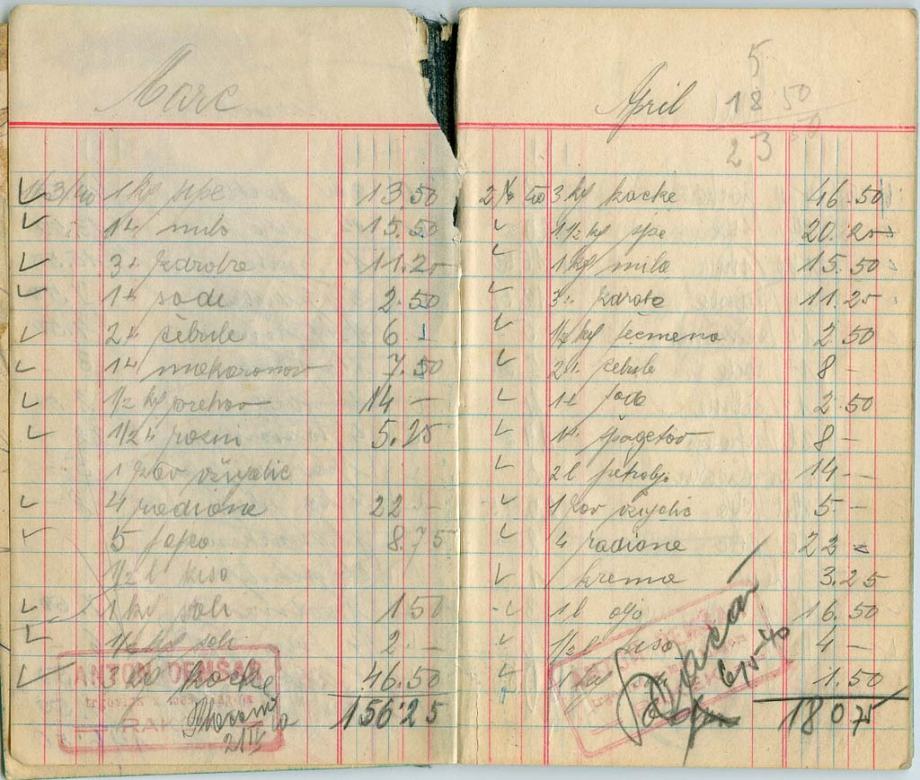 Marc
1 kg 13.50
1 " milo 15.50
3 " zdroba 11.25
1 " sode 2.50
2 " čebule 6
1 " makaronov 7.50
1/2 kg 14 —
1/2 " rozin 5.25
1 zav vžigalic
4 radione 22 —
5 8.75
1/2 l kisa
1 kg soli 1 50
1/2 kg 2. —
3 kg kocke 46.50
156.25
ANTON DEMŠAR
RAK
April
5
18 50
23 50
3 kg kocke 46.50
1 1/2 kg 20.25
1 kg mila 15.50
3 " 11.25
1/2 kg ječmena 2 50
2 " čebule 8 —
1 " soda 2.50
1 " špagetov 8 —
2 l petrolja 14 —
1 zav vžigalic 5 —
4 radione 22 —
krema 3.25
1 l olja 16.50
1/2 l kisa 4 —
1 kg 1.50
180 75